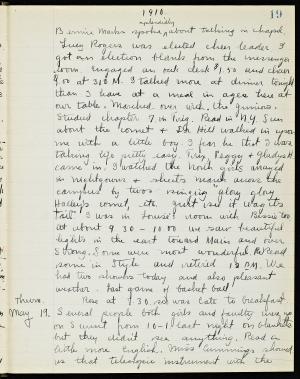 1910. 19
splendidly
Bernice Marks spoke, about talking in chapel.
Lucy Rogers was elected cheer leader. I
got an election blank from the messenger
room, engaged an oak desk $1.50 and chair
$.00 at 3:00 M. I talked more at dinner
than I have at a meal in ages here at
our table. Marched over with the juniors.
Studied chapter 7 in Trig. Read in N.Y. Sun
about the comet & Dr. Hill walked in upon
me with a little boy. I fear he that I was
taking life pretty easy. Trix, Peggy & Gladys H.
came in. I watched the North girls arrayed
in nightgowns & sheets march across the
campus by twos singing "glory glory
Halley's comet, etc. quit use if wag its
tail" I was in House's room with Bessie too
at about 9.30 - 10.00 we saw beautiful
lights in the east toward Main and over
Strong. Some were most wonderful. Read
some in Style and retired 12 P.M. We
had two shrubs today and also pleasant
weather. Last game of basket ball
Thurs. Rose at 7.30, so was late to breakfast
May 19. Several people both girls and faculty were up
on Sunset from 10-1 last night on blankets
but they didn't see anything. Read a
little more English. Miss Cummings showed
us that telescopic instrument with the